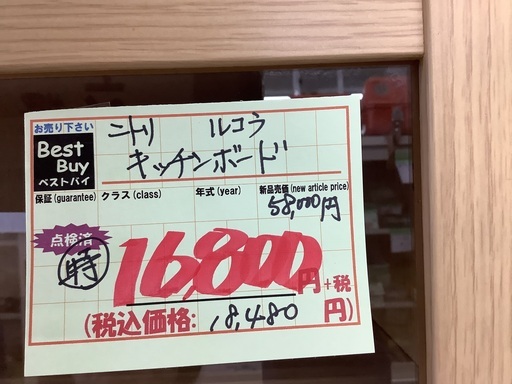 お売り下さい
Best
Buy
ベストバイ
ニトリ ルコラ
キッチンボード
保証(guarantee) クラス(class) 年式(year) 新品売価(new article price)
58,000円
点検済
時
16,800円+税
(税込価格: 18,480 円)